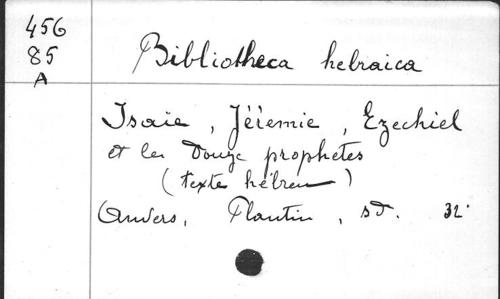 456
85
A
Bibliotheca hebraica
Isaïe, Jérémie, Ezechiel
et les Douze prophètes
(texte hébreu)
Anvers, Plantin, s.d. 32°